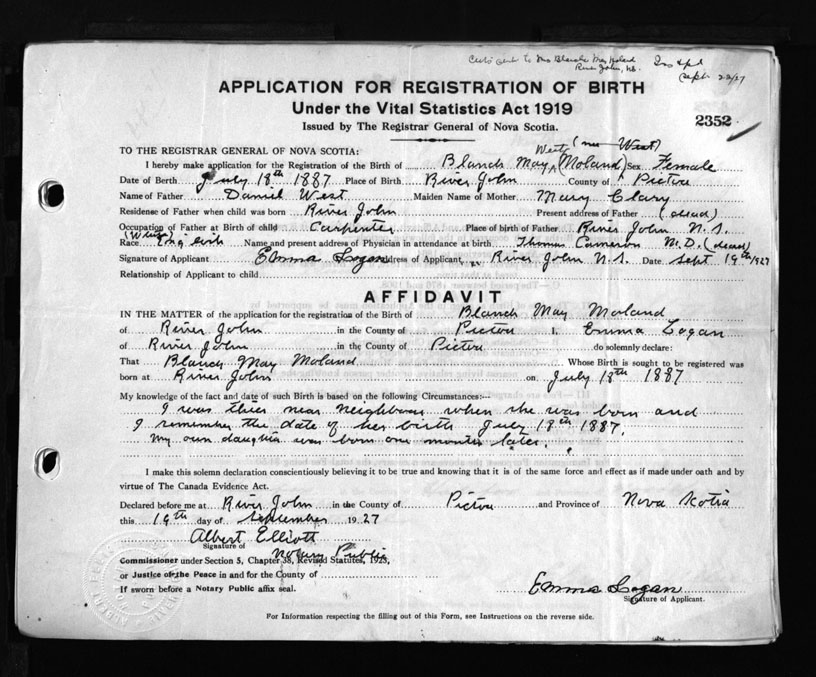 Cert. sent to Mrs Blanche May Moland
River John, N.S.
Sept 22/27
APPLICATION FOR REGISTRATION OF BIRTH
Under the Vital Statistics Act 1919
Issued by The Registrar General of Nova Scotia.
2352
TO THE REGISTRAR GENERAL OF NOVA SCOTIA:
West (nee West)
I hereby make application for the Registration of the Birth of Blanch May (Moland) Sex Female
Date of Birth July 18th 1887 Place of Birth River John County of Pictou
Name of Father Daniel West Maiden Name of Mother Mary Clary
Residence of Father when child was born River John Present address of Father (dead)
Occupation of Father at Birth of child Carpenter Place of birth of Father River John N.S.
(White)
Race English Name and present address of Physician in attendance at birth Thomas Cameron M.D. (dead)
Signature of Applicant Emma Logan Address of Applicant River John N.S. Date Sept 19th/1927
Relationship of Applicant to child
AFFIDAVIT
IN THE MATTER of the application for the registration of the Birth of Blanch May Moland
of River John in the County of Pictou I, Emma Logan
of River John in the County of Pictou do solemnly declare:
That Blanch May Moland Whose Birth is sought to be registered was
born at River John on July 18th 1887
My knowledge of the fact and date of such Birth is based on the following Circumstances:—
I was their near neighbour when she was born and
I remember the date of her birth July 18th 1887.
My own daughter was born one month later.
I make this solemn declaration conscientiously believing it to be true and knowing that it is of the same force and effect as if made under oath and by
virtue of The Canada Evidence Act.
Declared before me at River John in the County of Pictou and Province of Nova Scotia
this 19th day of September 1927
Albert Elliott
Signature of
Notary Public
Commissioner under Section 5, Chapter 38, Revised Statutes, 1923,
or Justice of the Peace in and for the County of
If sworn before a Notary Public affix seal.
Emma Logan
Signature of Applicant.
For Information respecting the filling out of this Form, see Instructions on the reverse side.